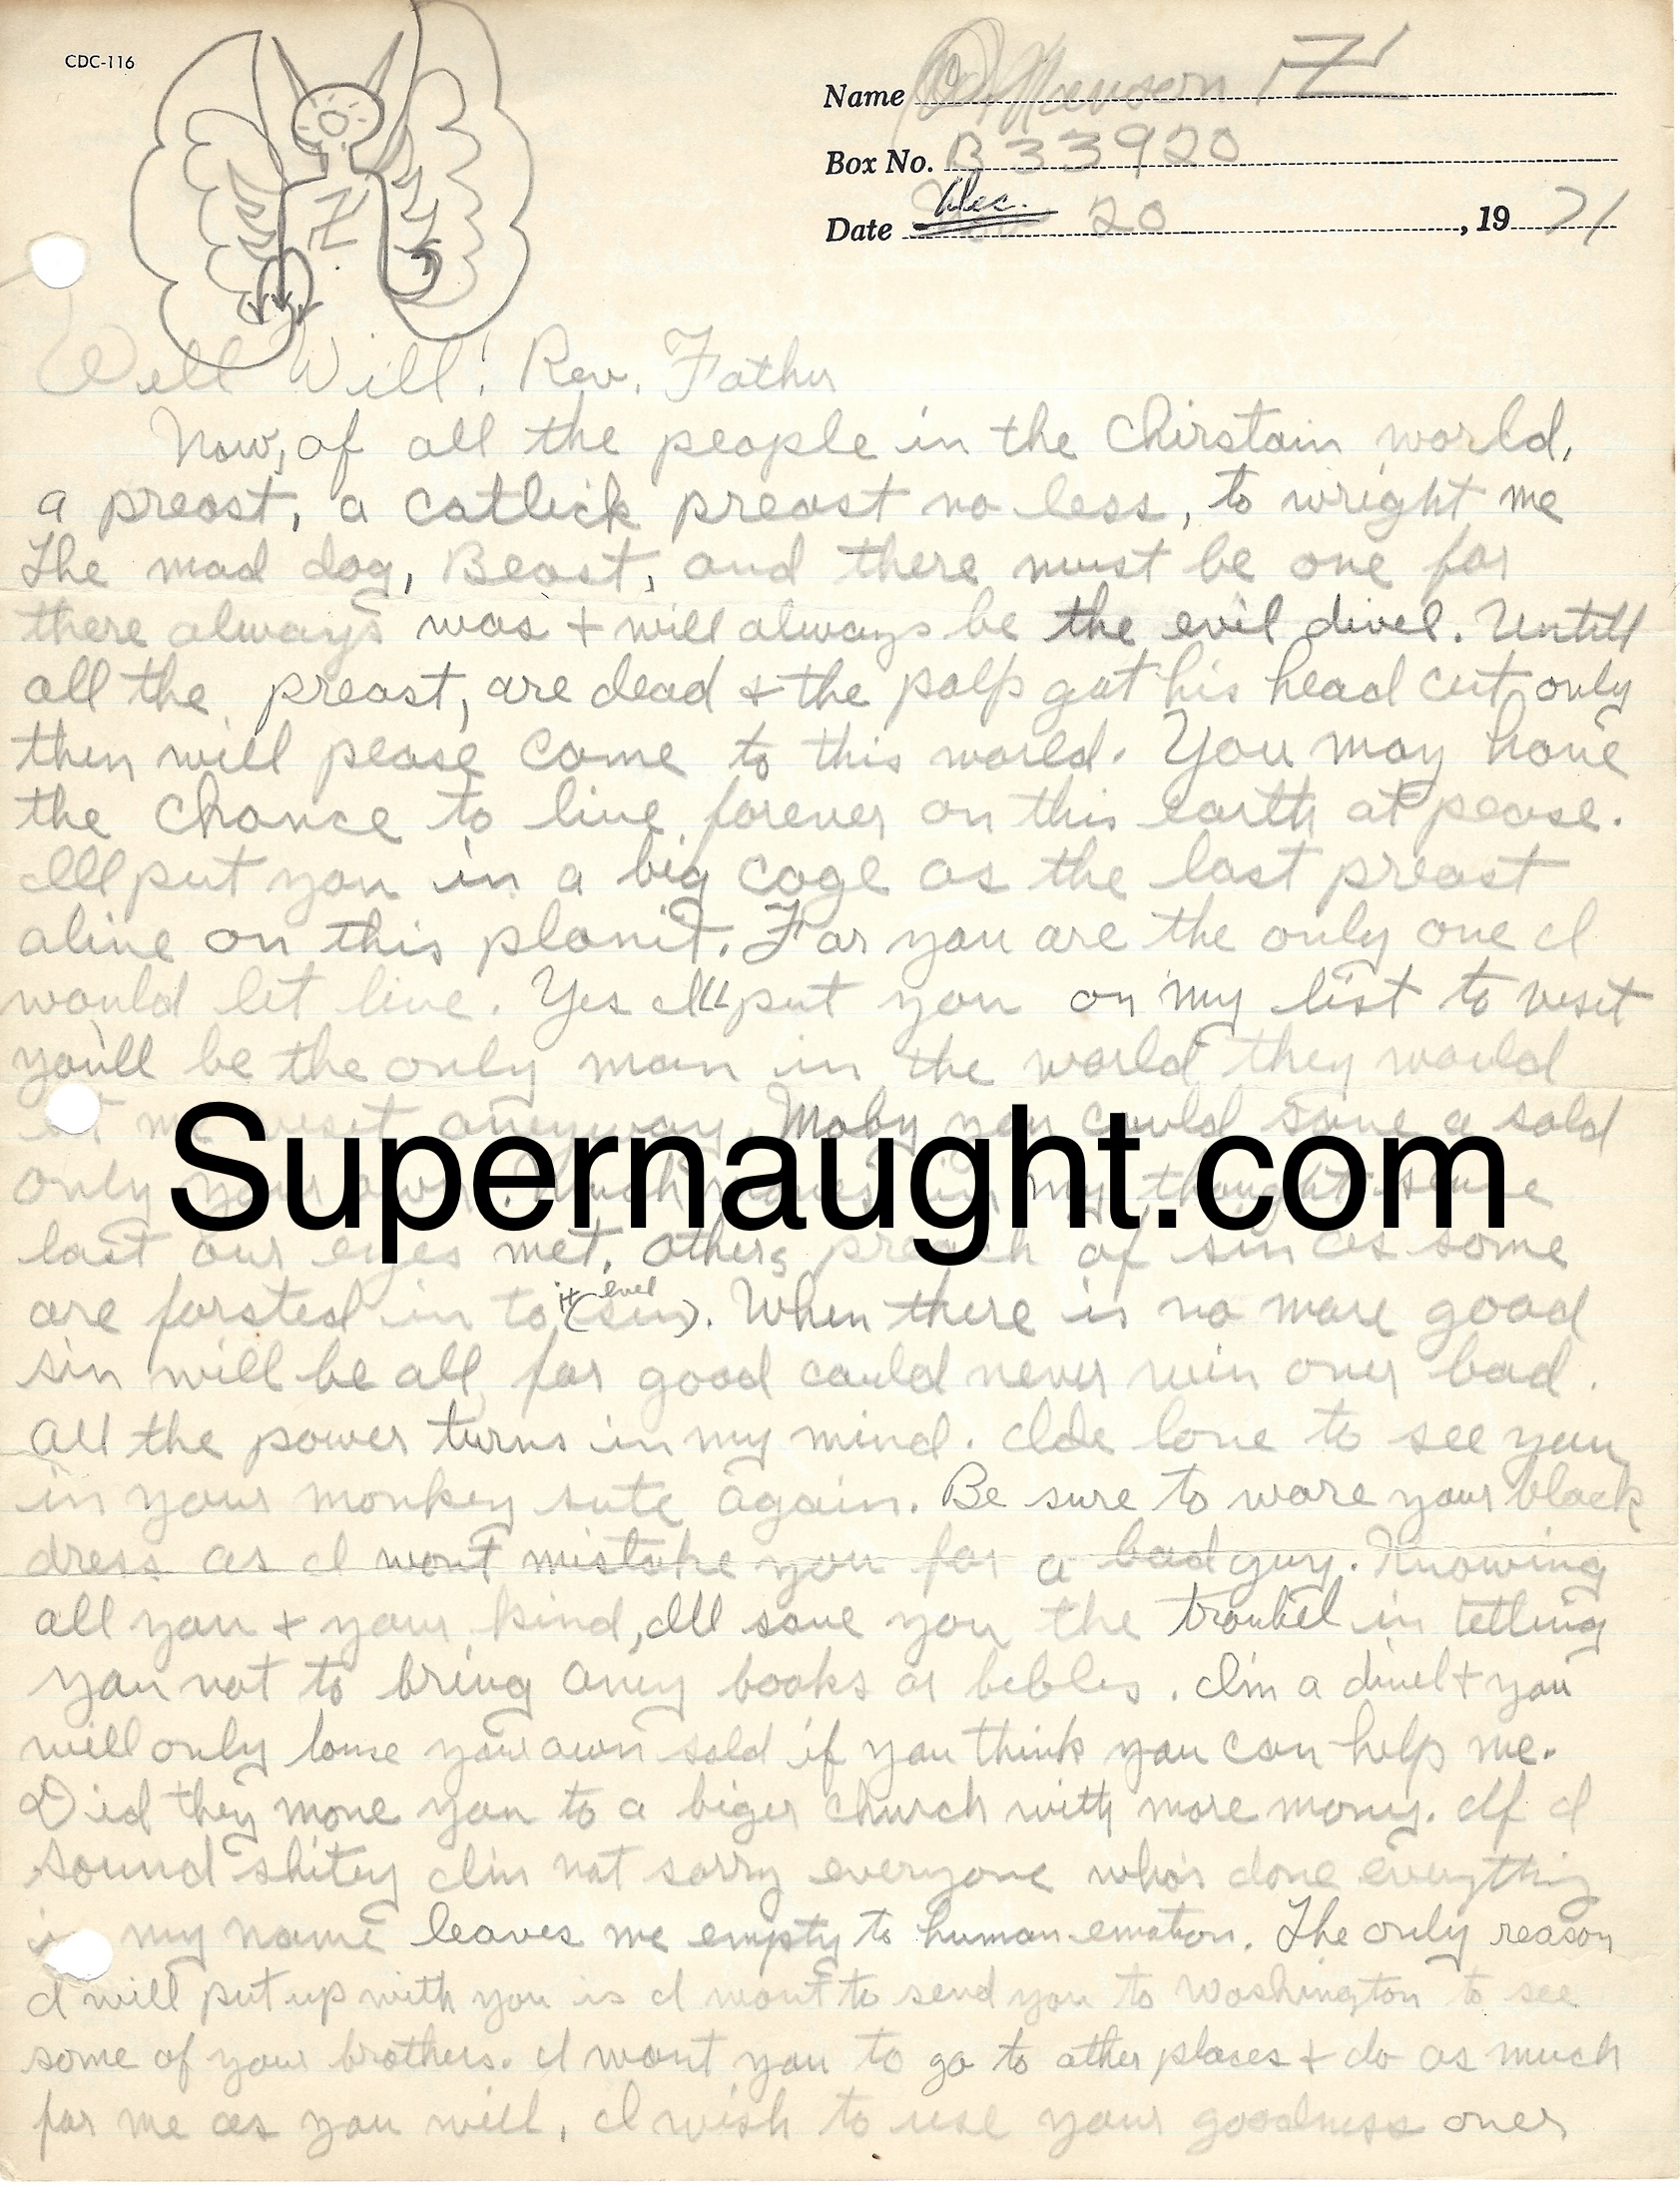 CDC-116
Name C. Manson
Box No. B 33920
Date Dec. 20, 19 71
Well Will! Rev. Father
Now, of all the people in the Chirstain world,
a preast, a catlick preast no less, to wright me
The mad dog, Beast, and there must be one for
there always was + will always be the evil divel. Untill
all the preast, are dead + the polp got his head cut, only
then will pease come to this world. You may have
the chance to live forever on this earth at pease.
Ill put you in a big cage as the last preast
alive on this planit. For you are the only one I
would let live. Yes Ill put you on my list to viset
you'll be the only man in the world they would
me viset aneyway. Maby you could save a sold
only your own. Much moves in my thought sence
last our eyes met. Others preach of sin as some
are forsted in to it (evel sin). When there is no more good
sin will be all for good could never win over bad.
All the power turns in my mind. Ide love to see you
in your monkey sute again. Be sure to ware your black
dress as I wont mistake you for a bad guy. Knowing
all you + your kind, Ill save you the troubel in telling
you not to bring aney books or bebles. Im a divel + you
will only louse your own sold if you think you can help me.
Did they move you to a biger church with more mony. If I
sound shitey Im not sorry everyone who's done everything
in my name leaves me empty to human emotion. The only reason
I will put up with you is I want to send you to Washington to see
some of your brothers. I want you to go to other places + do as much
for me as you will, I wish to use your goodness over
Supernaught.com